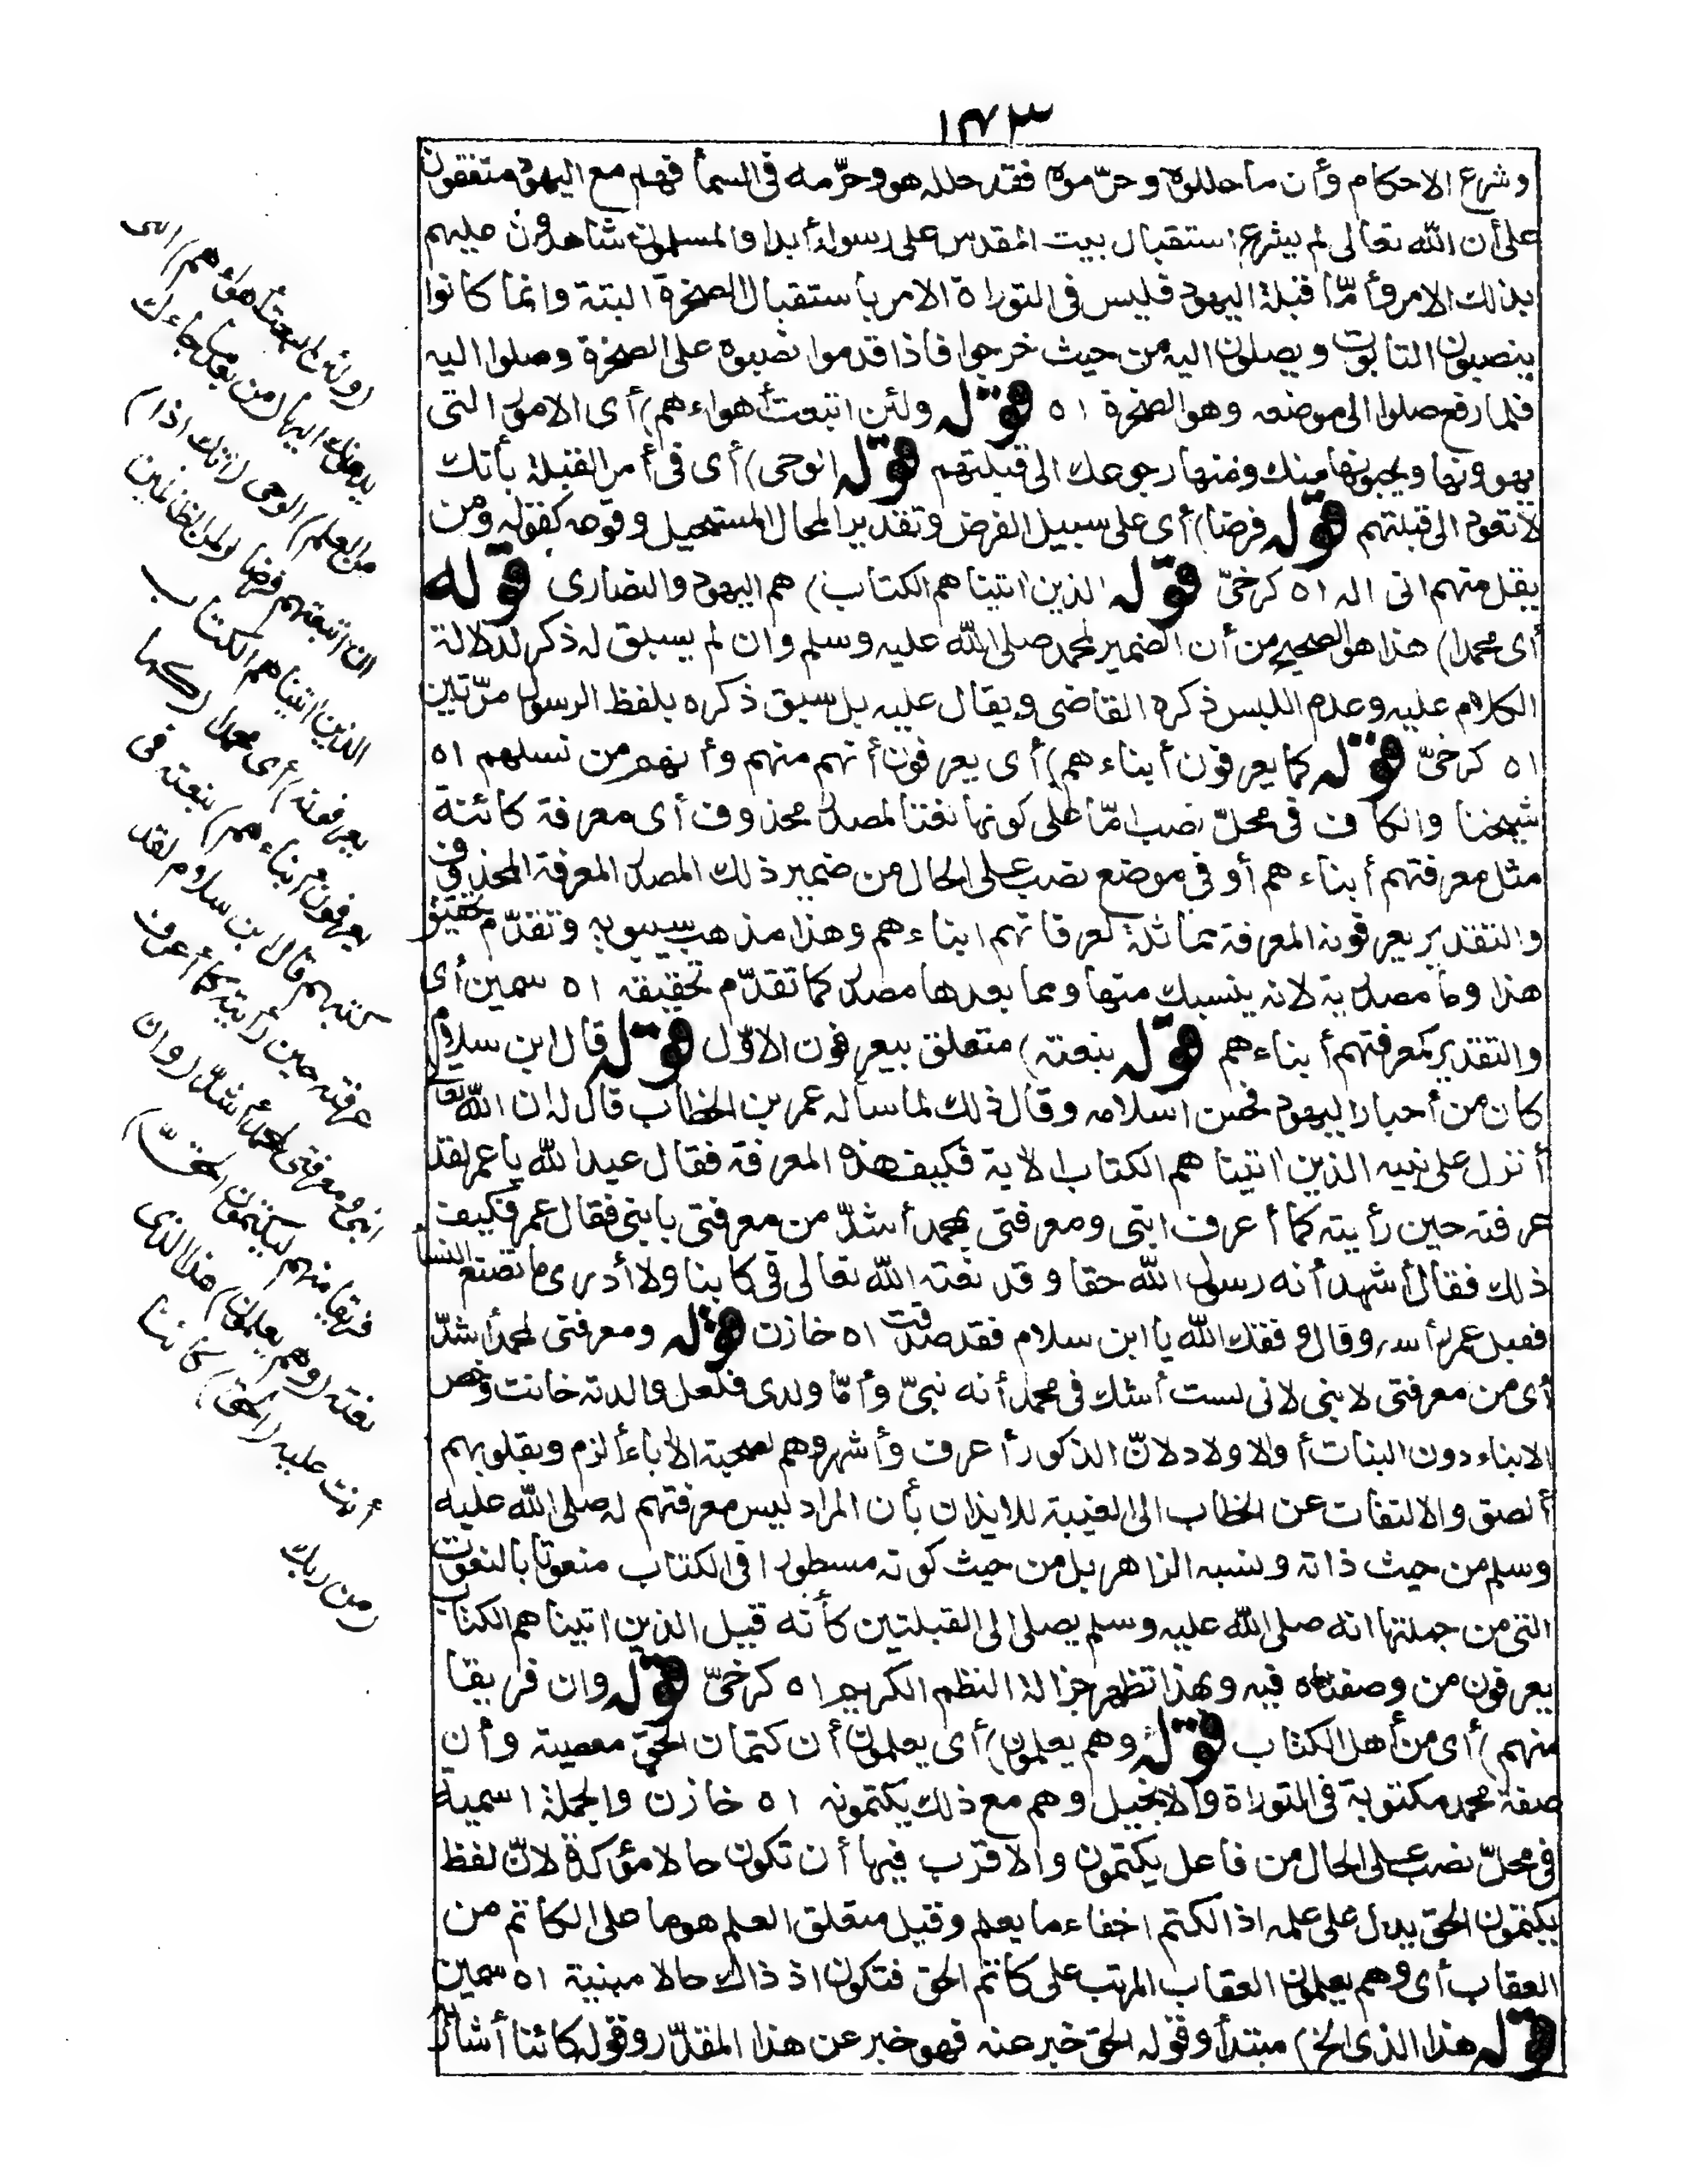 ١٤٣
وشرع الاحكام وأن ما حللوه وحرّموه فقد حلله هو وحرّمه في السمأ فهم مع اليهود متفقون
على أن الله تعالى لم يشرع استقبال بيت المقدس على رسوله أبدا والمسلمون شاهدون عليهم
بذلك الامر وأمّا قبلة اليهود فليس في التوراة الامر باستقبال الصخرة البتة وانما كانوا
ينصبون التابوت ويصلون اليه من حيث خرجوا فاذا قدموا نصبوه على الصخرة وصلوا اليه
فلما رفع صلوا الى موضعه وهو الصخرة اه قوله ولئن اتبعت أهواءهم) أى الامور التى
يهوونها ويحبونها منك ومنها رجوعك الى قبلتهم قوله الوحى) أى فى أمر القبلة بأنك
لا تعود الى قبلتهم قوله فرضا) أى على سبيل الفرض وتقدير المحال المستحيل وقوعه كقوله ومن
يقل منهم انى اله اه كرخىّ قوله الذين اتيناهم الكتاب) هم اليهود والنصارى قوله
أى محمدا) هذا هو الصحيح من أن الضمير لمحمد صلى الله عليه وسلم وان لم يسبق له ذكر لدلالة
الكلام عليه وعدم اللبس ذكره القاضى ويقال عليه بل سبق ذكره بلفظ الرسول مرّتين
اه كرخىّ قوله كما يعرفون أبناءهم) أى يعرفون أنهم منهم وأنهم من نسلهم اه
شيخنا والكاف فى محلّ نصب امّا على كونها نعتا لمصدر محذوف أى معرفة كائنة
مثل معرفتهم أبناءهم أو فى موضع نصب على الحال من ضمير ذلك المصدر المعرفة المحذوف
والتقدير يعرفونه المعرفة مماثلة لعرفانهم ابناءهم وهذا مذهب سيبويه وتقدّم تحقيق
هذا وما مصدرية لانه ينسبك منها ومما بعدها مصدر كما تقدّم تحقيقه اه سمين أى
والتقدير كمعرفتهم أبناءهم قوله بنعته) متعلق بيعرفون الاوّل قوله قال ابن سلام)
كان من أحبار اليهود فحسن اسلامه وقال ذلك لما سأله عمر بن الخطاب قال له ان الله تعا
أنزل على نبيه الذين اتيناهم الكتاب الاية فكيف هذه المعرفة فقال عبد الله يا عمر لقد
عرفته حين رأيته كما أعرف ابنى ومعرفتى بمحمد أشدّ من معرفتى بابنى فقال عمر فكيف
ذلك فقال أشهد أنه رسول الله حقا وقد نعته الله تعالى فى كتابنا ولا أدرى ما تصنع النسأ
فقبل عمر رأسه وقال وفقك الله يا ابن سلام فقد صدقت اه خازن قوله ومعرفتى لمحمد أشدّ
أى من معرفتى لابنى لانى لست أشك فى محمد أنه نبىّ وأمّا ولدى فلعل والدته خانت وخص
الابناء دون البنات أو الاولاد لانّ الذكور أعرف وأشهر وهم لصحبة الأباء ألزم وبقلوبهم
ألصق والالتفات عن الخطاب الى الغيبة للايذان بأن المراد ليس معرفتهم له صلى الله عليه
وسلم من حيث ذاته ونسبه الزاهر بل من حيث كونه مسطورا فى الكتاب منعوتا بالنعوت
التى من جملتها انه صلى الله عليه وسلم يصلى الى القبلتين كأنه قيل الذين اتيناهم الكتاب
يعرفون من وصفناه فيه وبهذا تظهر جزالة النظم الكريم اه كرخىّ قوله وان فريقا
منهم) أى من أهل الكتاب قوله وهم يعلمون) أى يعلمون أن كتمان الحق معصية وأن
صفة محمد مكتوبة فى التوراة والانجيل وهم مع ذلك يكتمونه اه خازن والجملة اسمية
فى محلّ نصب على الحال من فاعل يكتمون والاقرب فيها أن تكون حالا مؤكدة لانّ لفظ
يكتمون الحق يدل على علمه اذ الكتم اخفاء ما يعلم وقيل متعلق العلم هو ما على الكاتم من
العقاب أى وهم يعلمون العقاب المرتب على كاتم الحق فتكون اذ ذاك حالا مبنية اه سمين
قوله هذا الذى الخ) مبتدأ وقوله الحق خبر عنه فهو خبر عن هذا المقدّر وقوله كائنا أشار
(ولئن اتبعت أهواءهم) التى
يدعونك اليها (من بعد ما جاءك
من العلم) الوحى (انك اذا)
ان اتبعتهم فرضا (لمن الظالمين
الذين اتيناهم الكتاب
يعرفونه) أى محمدا (كما
يعرفون أبناءهم) بنعته فى
كتبهم قال ابن سلام لقد
عرفته حين رأيته كما أعرف
ابنى ومعرفتى لمحمد أشدّ (وان
فريقا منهم ليكتمون الحقّ)
نعته (وهم يعلمون) هذا الذى
أنت عليه (الحق) كائنا
(من ربك